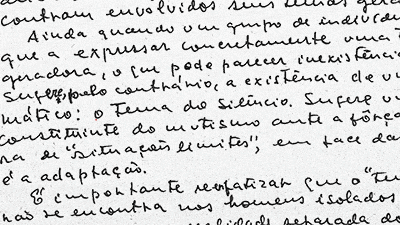 contram envolvidos seus temas gera
Ainda quando um grupo de indivídu
que a expressar concretamente uma t
geradora, o que pode parecer inexistênci
Sugere, pelo contrário, a existência de u
mático: o tema do silêncio. Sugere u
constituinte do mutismo ante a fôrç
ra de "situações limites", em face da
é a adaptação.
É importante reenfatizar que o "te
não se encontra nos homens isolados
separada do